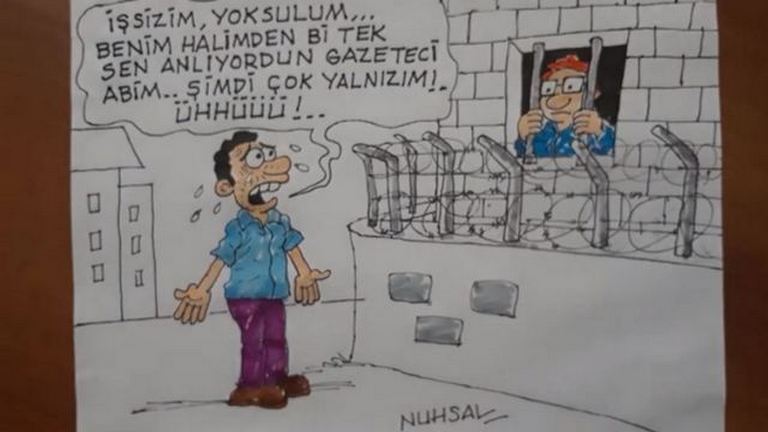 İŞSİZİM, YOKSULUM...
BENİM HALİMDEN Bİ TEK
SEN ANLIYORDUN GAZETECİ
ABİM.. ŞİMDİ ÇOK YALNIZIM!.
ÜHHÜÜÜÜ!..
NUHSAL